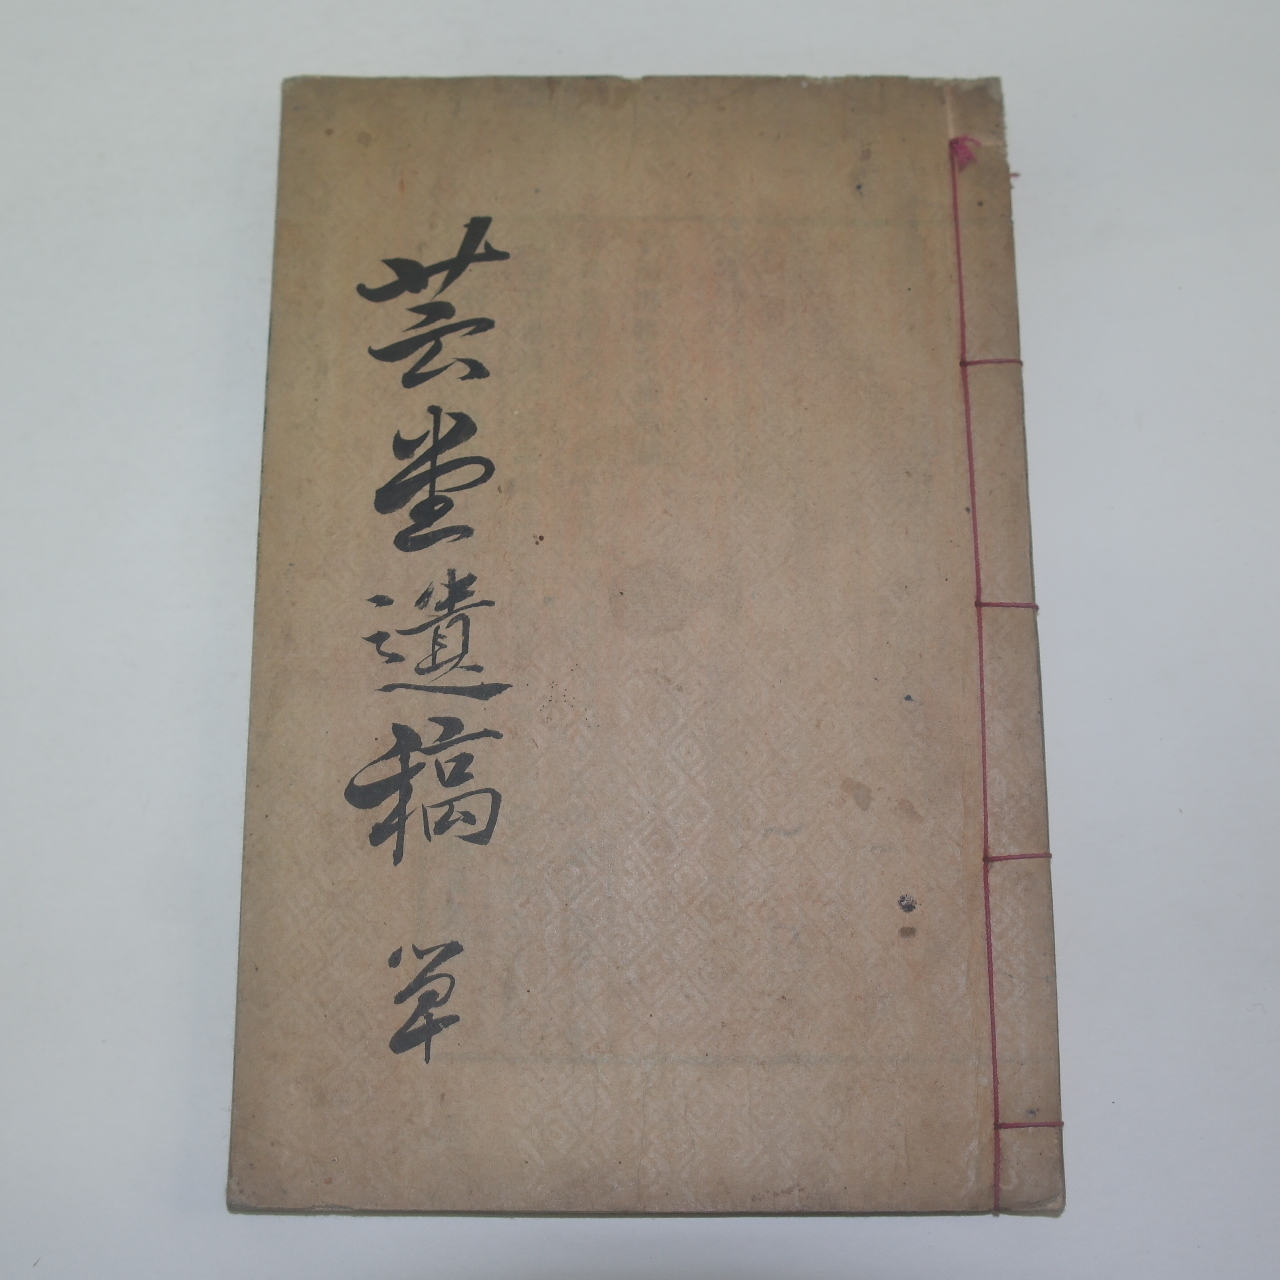 芸堂遺稿 單